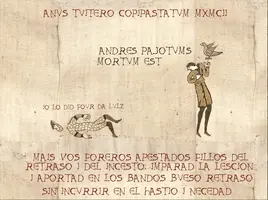 ANVS TVITERO COPIPASTATVM MXMCII
ANDRES PAJOTVMS
MORTVM EST
IO LO DIO POVR DA LVLZ
MAIS VOS FOREROS APESTADOS FILLOS DEL
RETRASO I DEL INCESTO: IMPARAD LA LESCION
I APORTAD EN LOS BANDOS BVESO RETRASO
SIN INCVRRIR EN EL HASTIO I NECEDAD